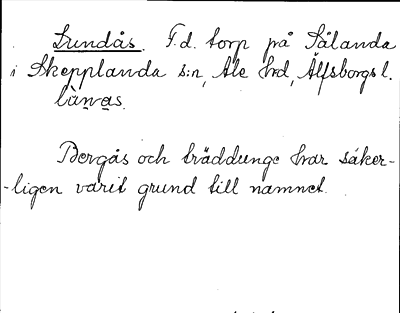 Lundås. F.d. torp på Sälanda
i Skepplanda s:n, Ale hrd, Älfsborgs l.
lùṉas.
Bergås och träddunge har säker-
-ligen varit grund till namnet.